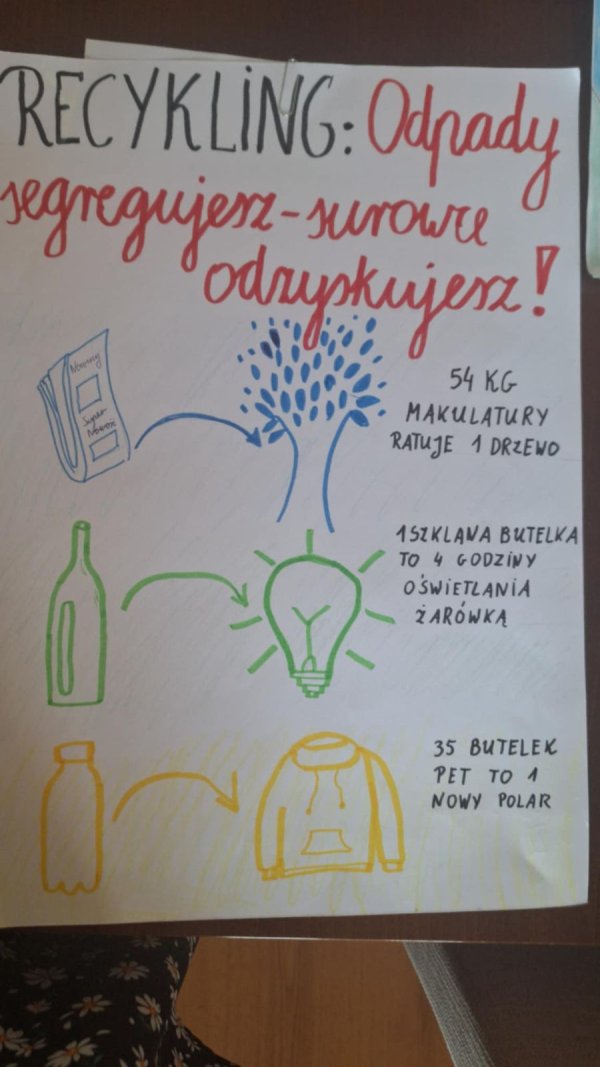 RECYKLING: Odpady
segregujesz - surowce
odzyskujesz!
Nowiny
Super
Nowość
54 KG
MAKULATURY
RATUJE 1 DRZEWO
1 SZKLANA BUTELKA
TO 4 GODZINY
OŚWIETLANIA
ŻARÓWKĄ
35 BUTELEK
PET TO 1
NOWY POLAR